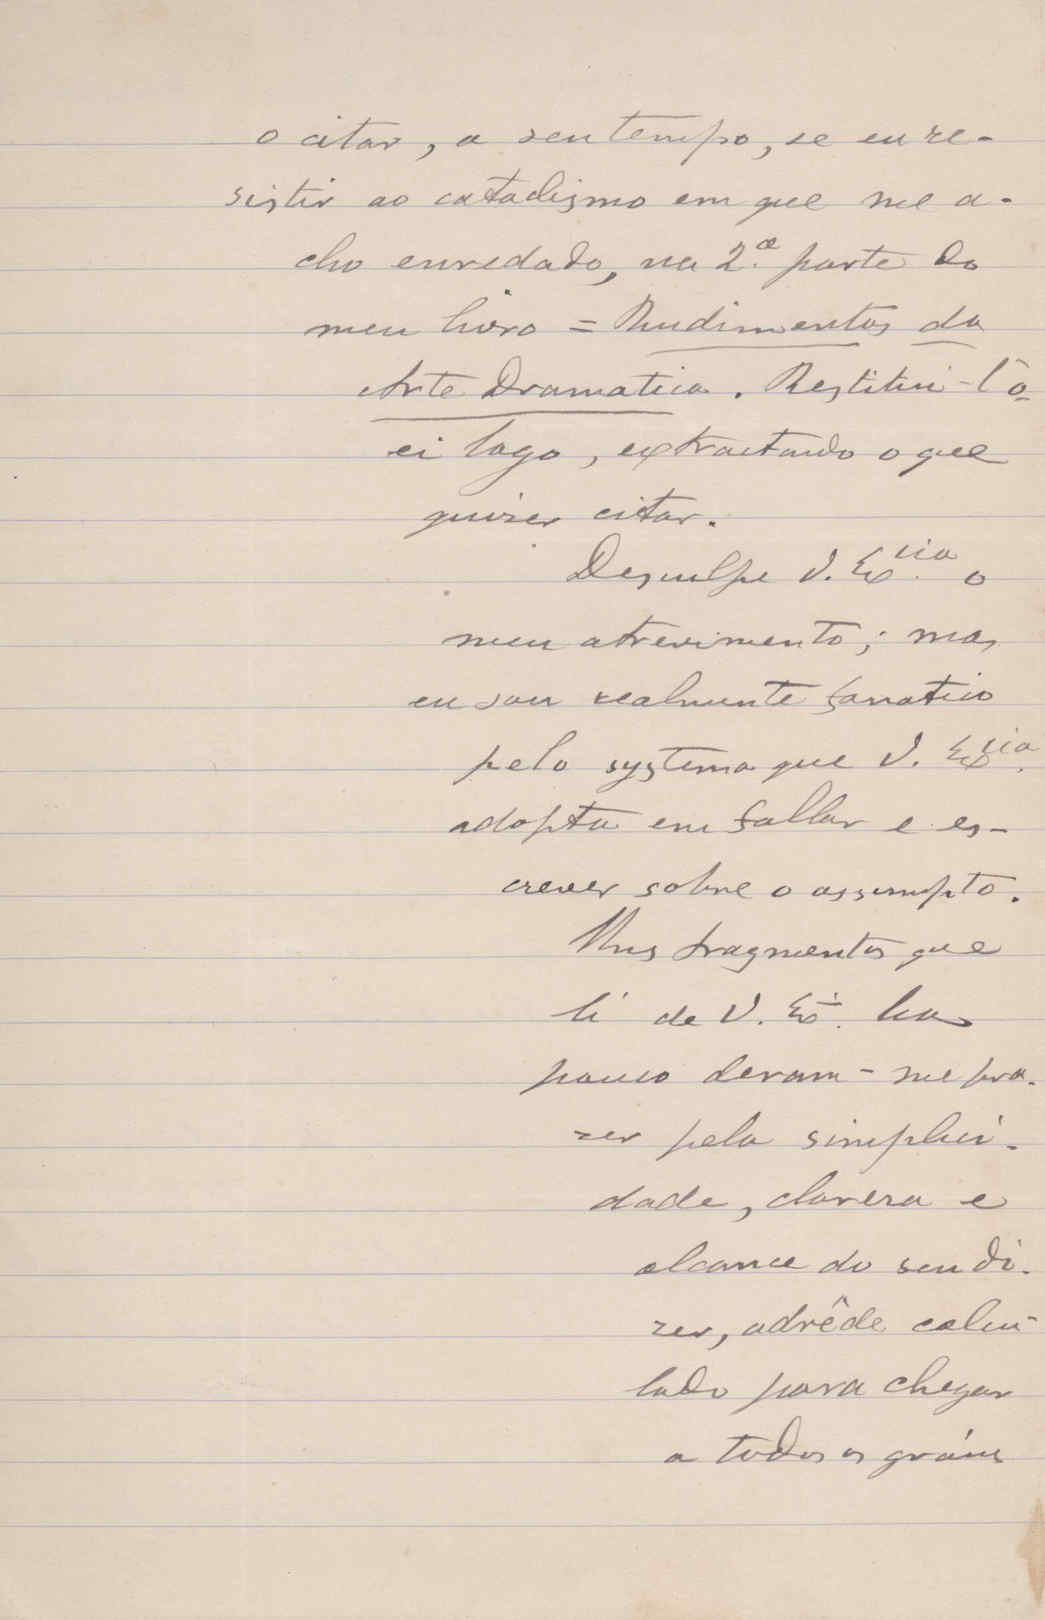 o citar, a seu tempo, se eu re-
sistir ao catadismo em que me a-
cho enredado, na 2.ª parte do
meu livro = Rudimentos da
Arte Dramatica. Restitui-l'o-
ei logo, extractando o que
quizer citar.
Desculpe V. Ex.cia o
meu atrevimento; mas
eu sou realmente fanatico
pelo systema que V. Ex.cia
adopta em fallar e es-
crever sobre o assumpto.
Uns fragmentos que
li de V. Ex.ª ha
pouco deram-me pra-
zer pela simplici-
dade, clareza e
alcance do seu di-
zer, adrêde calcu-
lado para chegar
a todos os gráus